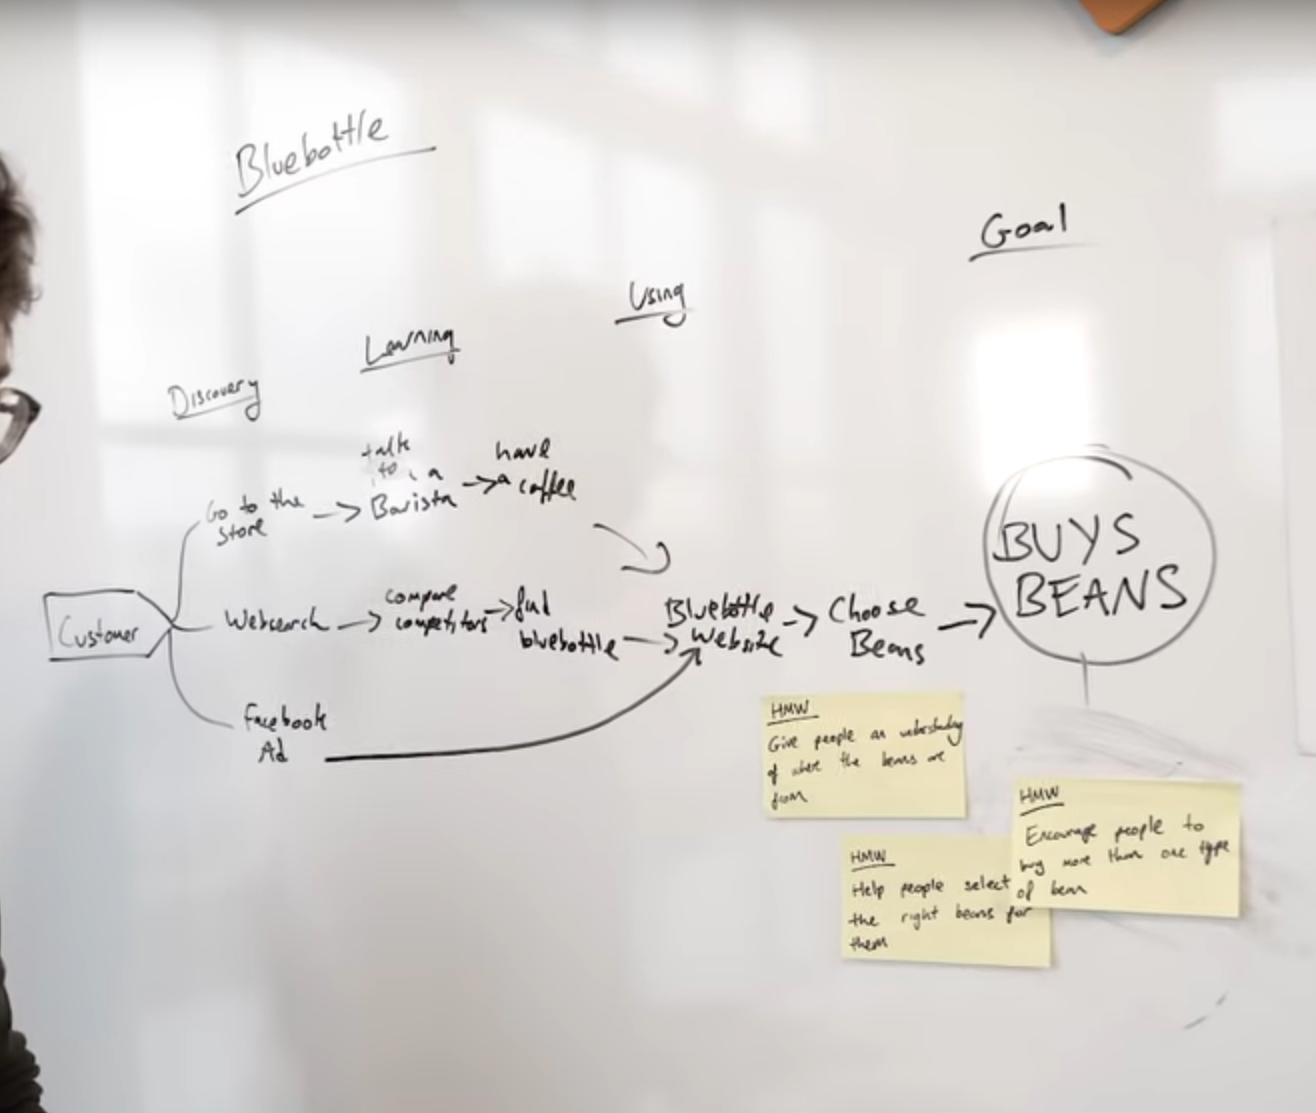 Bluebottle
Goal
Using
Learning
Discovery
talk
to a
Barista
have
a coffee
Go to the
Store
Customer
Websearch
compare
competitors
find
bluebottle
Bluebottle
Website
Choose
Beans
BUYS
BEANS
Facebook
Ad
HMW
Give people an understanding
of where the beans are
from
HMW
Help people select
the right beans for
them
HMW
Encourage people to
buy more than one type
of bean